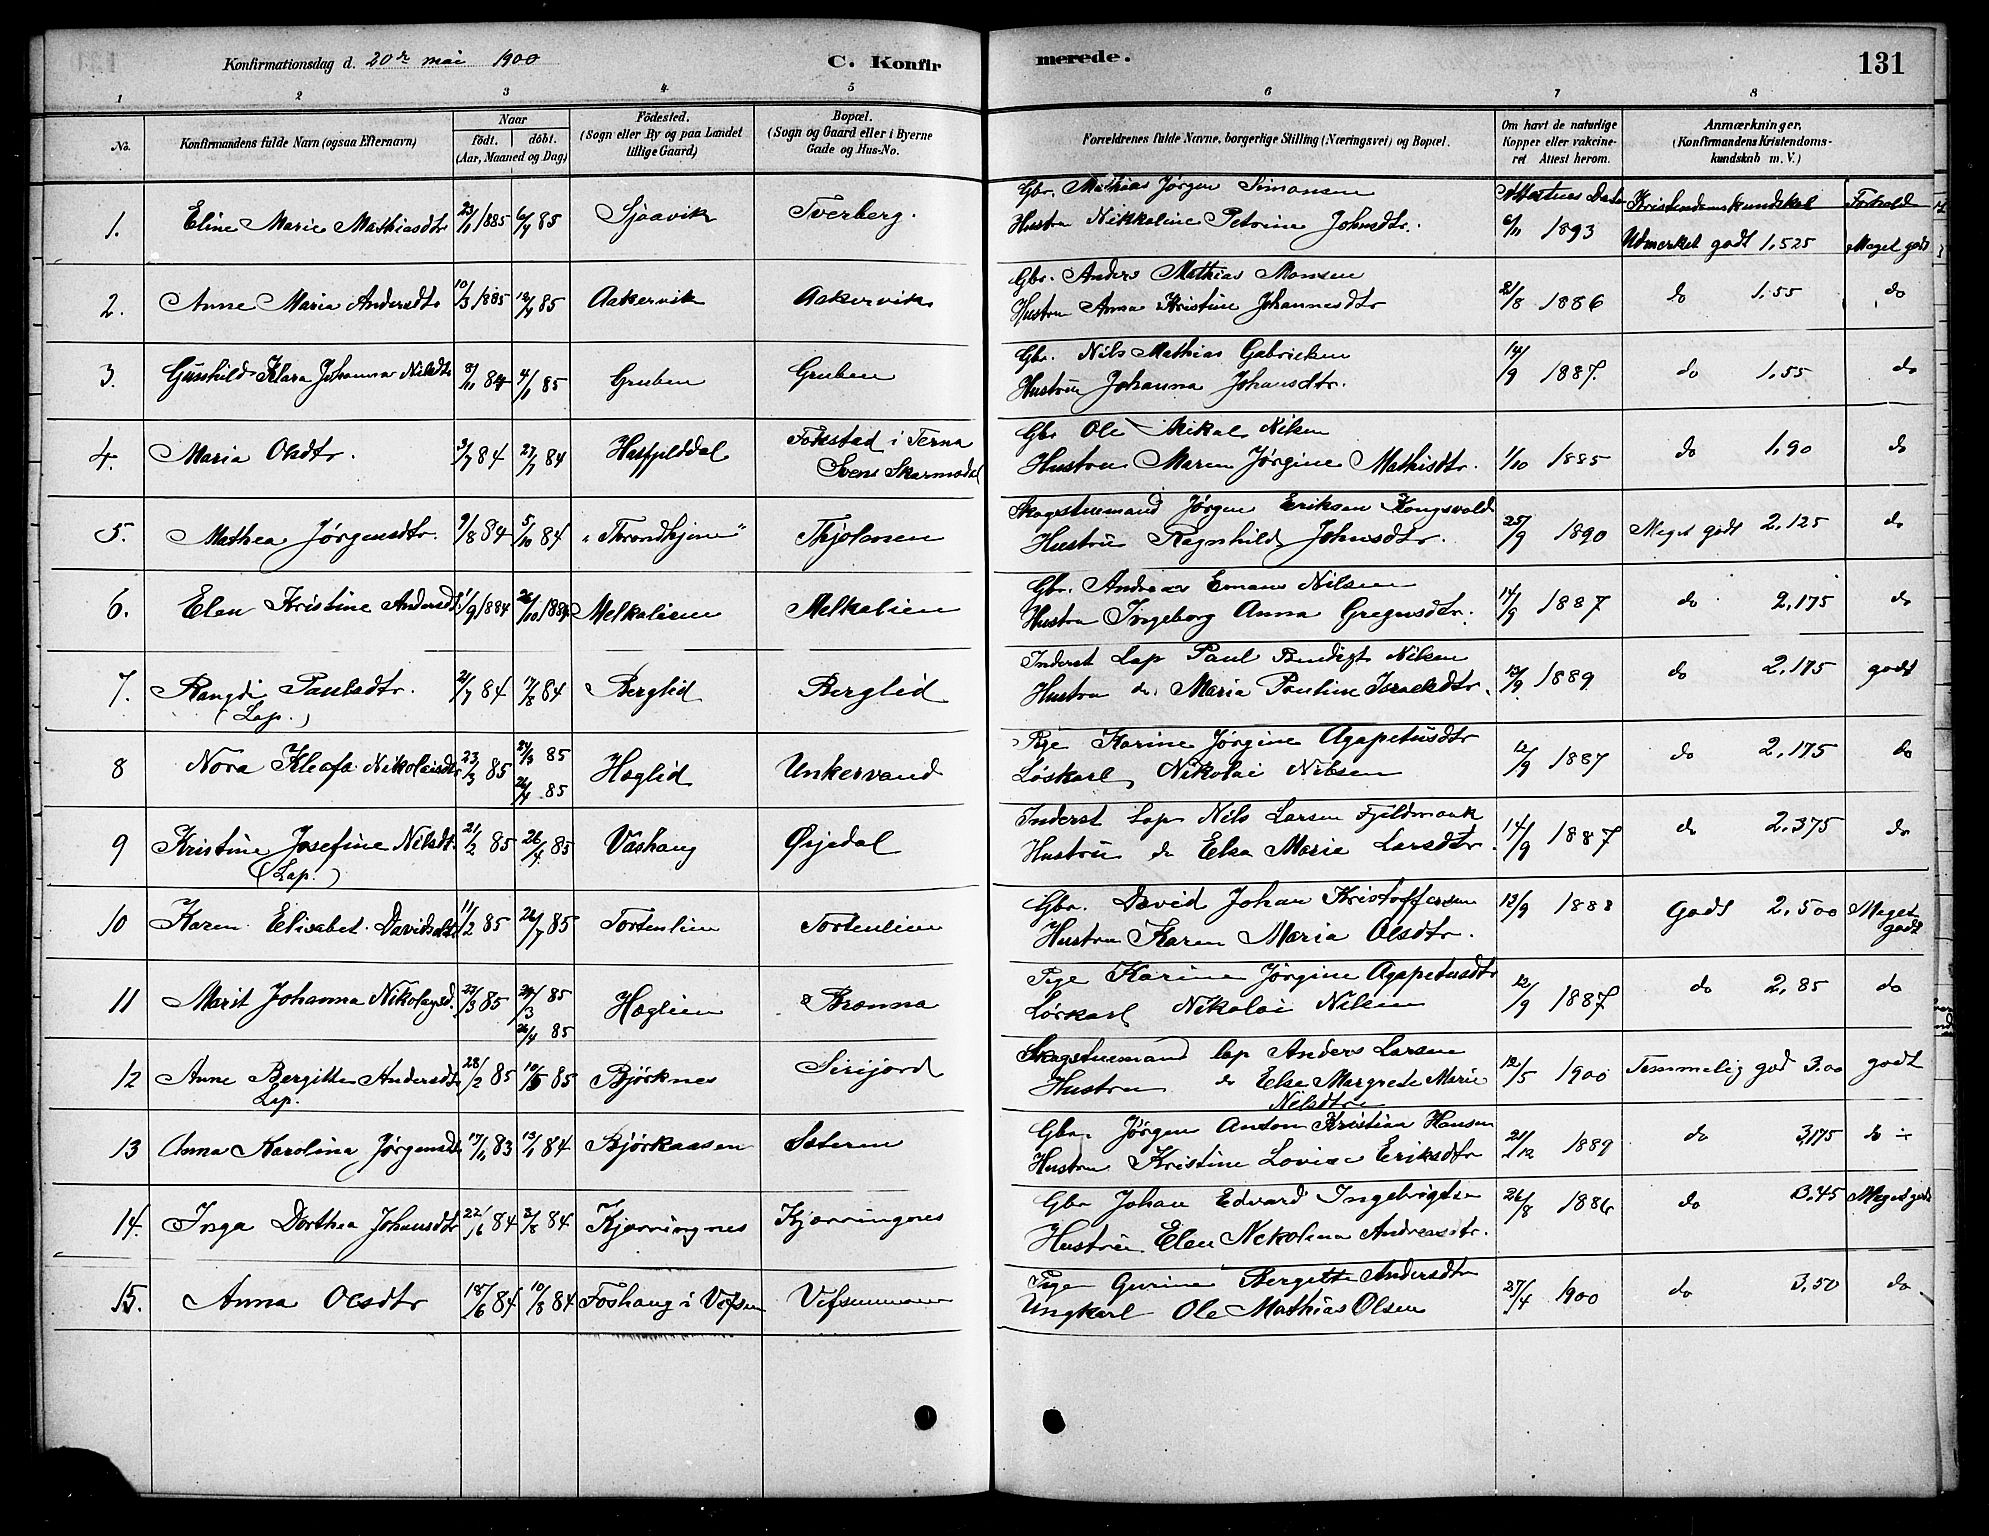 Konfirmationsdag d. 20de mai 1900
C. Konfirmerede.
131
1 2 3 4 5 6 7 8
No.
Konfirmandens fulde Navn (ogsaa Efternavn)
Naar
født. døbt.
(Aar, Maaned og Dag)
Fødested.
(Sogn eller By og paa Landet
tillige Gaard)
Bopæl.
(Sogn og Gaard eller i Byerne
Gade og Hus-No.
Forældrenes fulde Navne, borgerlige Stilling (Næringsvei) og Bopæl.
Om havt de naturlige
Kopper eller vakcineret
Attest herom.
Anmærkninger.
(Konfirmandens Kristendomskundskab
m. V.)
Attestens Dato Kristendomskundskab Forhold
1. Eline Marie Mathiasdtr 23/1 1885 6/4 85 Sjaavik Tverberg.
Gbr. Mathias Jørgen Simonsen
Hustru Nikkoline Petrine Johnsdtr. 6/11 1893 Udmerket godt 1,525 Meget godt
2. Anne Maria Andersdtr 10/3 1885 12/4 85 Aakervik Aakervik
Gbr. Anders Mathias Monsen
Hustru Anna Kristine Johannesdtr 21/8 1886 do 1,55 do
3. Gunhild Klara Johanna Nilsdtr 8/11 84 4/1 85 Gruben Gruben
Gbr. Nils Mathias Gabrielsen
Hustru Johanna Johansdtr. 14/9 1887. do 1,55 do
4. Maria Olsdtr. 3/7 84 27/7 84 Hasfjelddal Fokstad i Terna
Svens Skarmodal
Gbr Ole Mikal Nilsen
Hustru Maren Jørgine Mathisdtr. 1/10 1885 do 1,90 do
5. Mathea Jørgensdtr. 9/8 84 5/10 84 "Throndhjem" Thjolanen
Skogstuemand Jørgen Eriksen Kongsvold
Hustru Ragnhild Johnsdtr. 25/9 1890 Meget godt 2,125 do
6. Elen Kristine Andersdt. 1/9 1884 26/10 1884 Melkalien Melkalien
Gbr. Andreas Emans Nilsen
Hustru Ingeborg Anna Gregusdtr. 14/9 1887 do 2,175 do
7. Rangdi Paulsdtr. 21/7 84 17/8 84 Berglid Berglid
(Lap.)
Inderst Lap Paul Bendigt Nilsen
Hustru do. Maria Pauline Israelsdtr. 13/9 1889 do 2,175 godt
8 Nora Kleofa Nikolaisdtr 23/3 85 24/3 85 Haglid Unkervand
26/4 85
Pige Karine Jørgine Agapetusdtr
Løskarl Nikolai Nilsen 12/9 1887 do 2,175 do
9 Kristine Josefine Nilsdt. 21/2 85 26/4 85 Vashaug Ørjedal
(Lap.)
Inderst Lap Nils Larsen Fjeldmank
Hustru do Elsa Maria Larsdtr. 14/9 1887 do 2,375 do
10 Karen Elisabet Davidsdtr 11/2 85 26/7 85 Tortenlien Tortenlien
Gbr. David Johan Kristoffersen
Hustru Karen Maria Olsdtr. 13/9 1888 Godt 2,500 Meget
godt
11 Marit Johanna Nikolaysd. 23/3 85 24/3 85 Haglien Brænna
26/4 85
Pige Karine Jørgine Agapetusdtr
Løskarl Nikolai Nilsen 12/9 1887 do 2,85 do
12 Anne Bergitte Andersdtr 28/2 85 10/5 85 Bjørknes Sirijord
Lap.
Skogstuemand lap Anders Larsen
Hustru do Elsa Margrete Marie
Nilsdtr 12/5 1900 Temmelig god 3.00 godt
13 Anna Karolina Jørgensdtr 17/11 83 13/1 84 Bjørkaasen Sæteren
Gbr. Jørgen Anton Kristian Hansen
Hustru Kristine Lovise Eriksdtr 21/12 1889 do 3,175 do ÷
14. Inga Dorthea Johansdtr 22/6 84 3/8 84 Kjærringnes Kjærringnes
Gbr Johan Edvard Ingebrigtsen
Hustru Elen Nekolina Andreasdtr. 26/8 1886 do 3,45 Meget godt
15. Anna Olsdtr 18/6 84 10/8 84 Foshaug i Vefsen Vefsenmoen
Pige Gurine Bergitte Andersdtr
Ungkarl Ole Mathias Olsen 27/4 1900 do 3,50 do